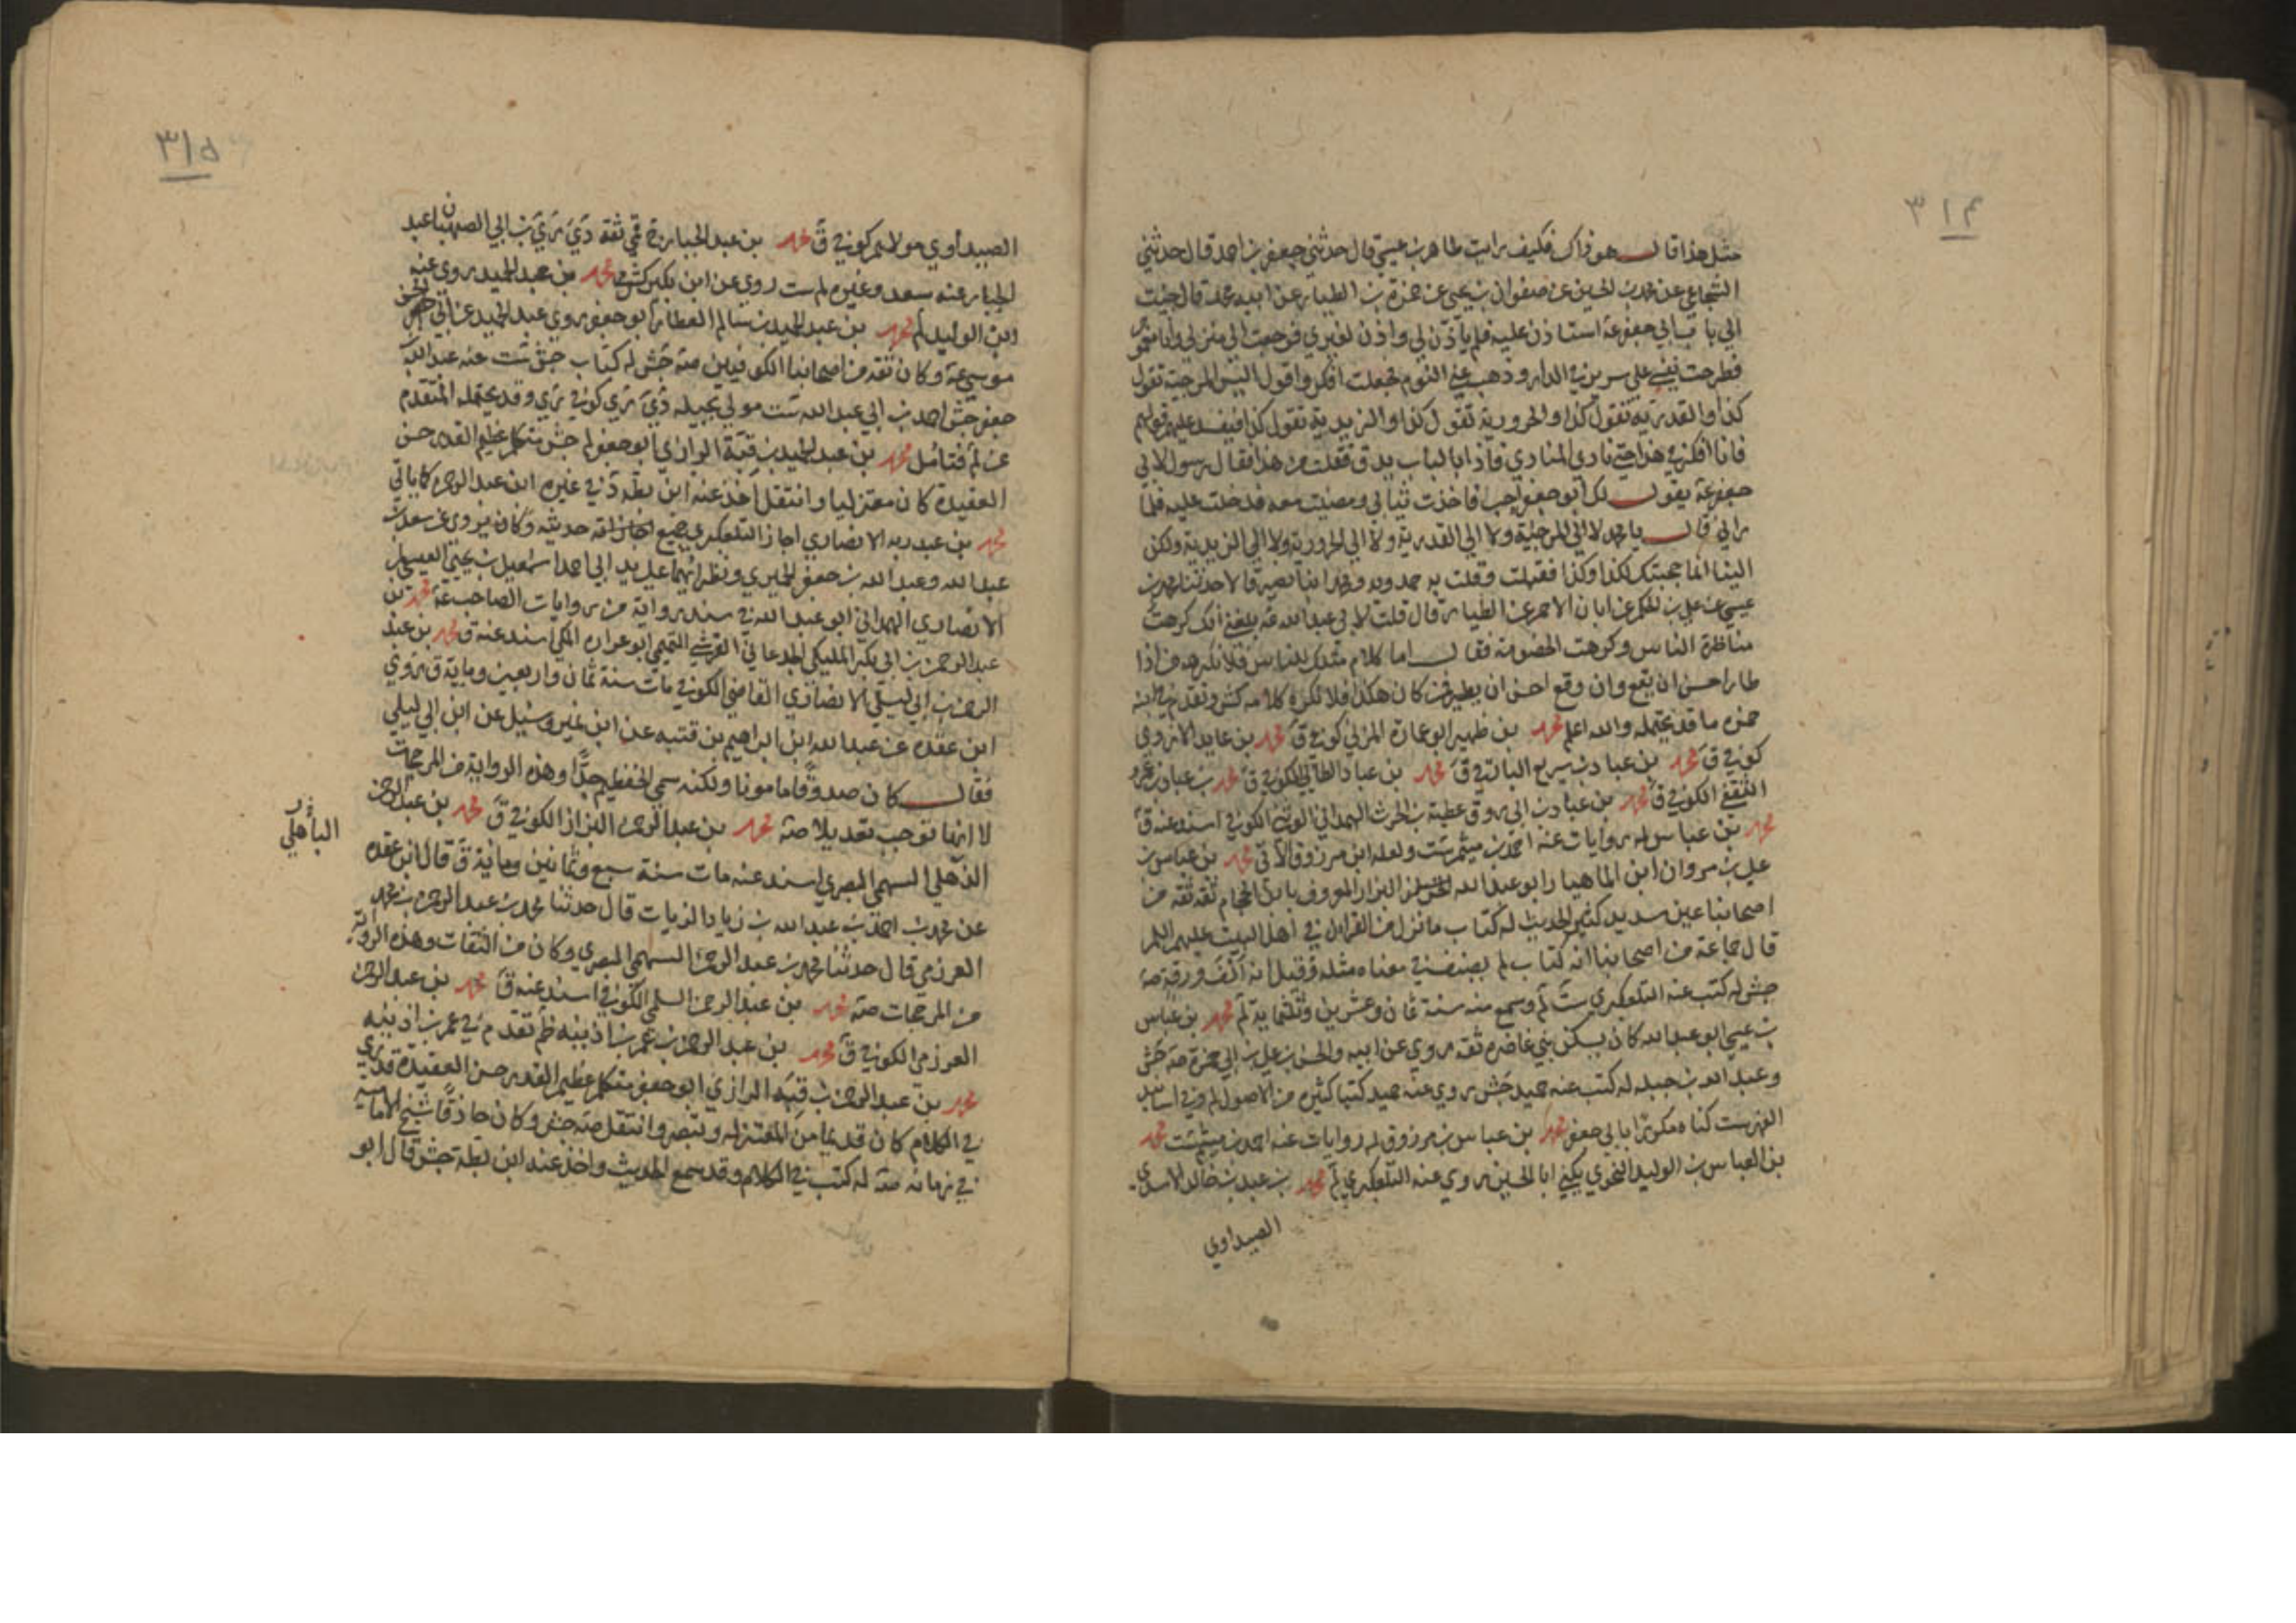 ٣١٤
مثل هذا قال هو ذاك فكيف رايت طاهر بن عيسى قال حدثني جعفر بن احمد قال حدثني
الشجاعي عن محمد بن الحسين عن صفوان بن يحيى عن حمزة بن الطيار عن ابيه محمد قال جئت
الى باب ابي جعفر عه استاذن عليه فلم ياذن لي واذن لغيري فرجعت الى منزلي وانا مغموم
فطرحت نفسي على سرير في الدار وذهب عني النوم فجعلت افكر واقول اليس المرجئة تقول
كذا والقدرية تقول كذا والحرورية تقول كذا والزيدية تقول كذا فيفسد عليهم قولهم
فانا افكر في هذا حتى نادى المنادي فاذا بالباب يدق فقلت من هذا فقال رسول لابي
جعفر عه يقول لك ابو جعفر اجب فاخذت ثيابي ومضيت معه فدخلت عليه فلما
راني قال يا محمد لا الى المرجئة ولا الى القدرية ولا الى الحرورية ولا الى الزيدية ولكن
الينا انما حجبتك لكذا وكذا فقبلت وقلت به حمدويه ومحمد ابنا نصير قالا حدثنا محمد بن
عيسى عن علي بن الحكم عن ابان الاحمر عن الطيار قال قلت لابي عبد الله عه بلغني انك كرهت
مناظرة الناس وكرهت الخصومة فقال اما كلام مثلك للناس فلا نكرهه من اذا
طار احسن ان يقع وان وقع احسن ان يطير فمن كان هكذا فلا نكره كلامه كش وتقدم في ابنه
حمزه ما قد يحتمله والله اعلم محمد بن ظهير ابو عمارة المزني كوفي ق محمد بن عايد الازدي
كوفي ق محمد بن عباد بن سريع البارقي ق محمد بن عباد الطائي الكوفي ق محمد بن عباد بن عمرو
الثقفي الكوفي ق محمد بن عباد بن ابي روق عطية بن الحرث الهمداني الوثني الكوفي اسند عنه ق
محمد بن عباس له روايات عنه احمد بن ميثم ست ولعله ابن مرزوق الاتي محمد بن عباس بن
علي بن مروان ابن الماهيار ابو عبد الله البزاز المعروف بابن الحجام ثقة ثقة من
اصحابنا عين سديد كثير الحديث له كتاب ما نزل من القران في اهل البيت عليهم السلم
قال جماعة من اصحابنا انه كتاب لم يصنف في معناه مثله وقيل انه الف ورقة صه
جش له كتب عنه التلعكبري ست لم وسمع منه سنة ثمان وعشرين وثلثماية لم محمد بن عباس
بن عيسى ابو عبد الله كان يسكن بني غاضره ثقه روى عن ابيه والحسن بن علي بن ابي حمزة صه جش
وعبد الله بن جبله له كتب عنه حميد جش روى عنه حميد كتبا كثيره من الاصول لم وفي اسانيد
الفهرست كناه مكررا بابي جعفر محمد بن عباس بن مرزوق له روايات عنه احمد بن ميثم ست محمد
بن العباس بن الوليد النحوي يكنى ابا الحسين روى عنه التلعكبري لم محمد بن عبد بن خالد الاسدي
الصيداوي
٣١٥
الصيداوي مولاهم كوفي ق محمد بن عبد الجبار قمي ثقة دي ري بن ابي الصهبان عبد
الجبار عنه سعد وغيره لم ست روى عن ابن بكير كش محمد بن عبد الحميد روى عنه
ابن الوليد لم محمد بن عبد الحميد بن سالم العطار ابو جعفر روى عبد الحميد عن ابي الحسن
موسى عه وكان ثقه من اصحابنا الكوفيين صه جش له كتاب جش ست عنه عبد الله
جعفر جش احمد بن ابي عبد الله ست مولى بجيله دي ري كوفي ري وقد يحتمله المتقدم
عن لم فتامل محمد بن عبد الحميد بن قبة الرازي ابو جعفر لم جش متكلم عظيم القدر حسن
العقيدة كان معتزليا وانتقل اخذ عنه ابن بطه د في غيره ابن عبد الرحمن كما ياتي
محمد بن عبد ربه الانصاري اجاز التلعكبري جميع حديثه وكان يروي عن سعد بن
عبد الله وعبد الله بن جعفر الحميري ونظرائهما على يد ابي احمد اسمعيل بن يحيى العبسي لم
الانصاري الهمداني ابو عبد الله في سند رواية من روايات الصاحب عه محمد بن
عبد الرحمن بن ابي بكر المليكي الجدعاني القرشي التيمي ابو عراره المكي اسند عنه ق محمد بن عبد
الرحمن بن ابي ليلى الانصاري القاضي الكوفي مات سنة ثمان واربعين وماية ق روى
ابن عقده عن عبد الله ابن ابراهيم بن قتيبه عن ابن نمير وسئل عن ابن ابي ليلى
فقال كان صدوقا مامونا ولكنه سيئ الحفظ جدا وهذه الرواية من المرجحات
لا انها توجب تعديلا صه محمد بن عبد الرحمن البزاز الكوفي ق محمد بن عبد الرحمن
الباهلي
الذهلي السهمي البصري اسند عنه مات سنة سبع وثمانين وماية ق قال ابن عقده
عن محمد بن احمد بن عبد الله بن زياد الزيات قال حدثنا محمد بن عبد الرحمن بن محمد
العرزمي قال حدثنا محمد بن عبد الرحمن السهمي البصري وكان من الثقات وهذه الرواية
من المرجحات صه محمد بن عبد الرحمن السلمي الكوفي اسند عنه ق محمد بن عبد الرحمن
العرزمي الكوفي ق محمد بن عبد الرحمن بن عمر بن اذينه ظم تقدم في عمر بن اذينه
محمد بن عبد الرحمن بن قبه الرازي ابو جعفر متكلم عظيم القدر حسن العقيدة قوي
في الكلام كان قديما من المعتزله وتبصر وانتقل صه جش وكان حاذقا شيخ الامامية
في زمانه صه له كتب في الكلام وقد سمع الحديث واخذ عنه ابن بطة جش قال ابو